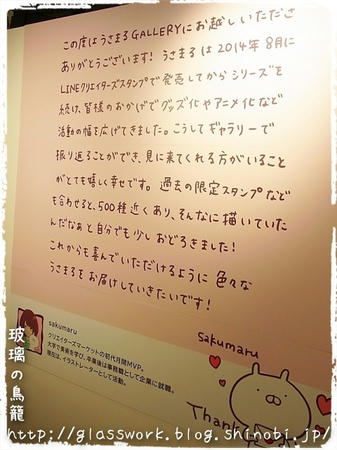 この度はうさまるGALLERYにお越しいただき
ありがとうございます! うさまるは2014年8月に
LINEクリエイターズスタンプで発売してからシリーズを
続け、皆様のおかげでグッズ化やアニメ化など
活動の幅を広げてきました。こうしてギャラリーで
振り返ることができ、見に来てくれる方がいること
がとても嬉しく幸せです。過去の限定スタンプなど
も合わせると、500種近くあり、そんなに描いていた
んだなぁと自分でも少しおどろきました!
これからも喜んでいただけるように色々な
うさまるをお届けしていきたいです!
sakumaru
sakumaru
クリエイターズマーケットの初代月間MVP。
大学で美術を学び、卒業後は事務職として企業に就職。
現在は、イラストレーターとして活動。
Thank
玻璃の鳥籠
http://glasswork.blog.shinobi.jp/